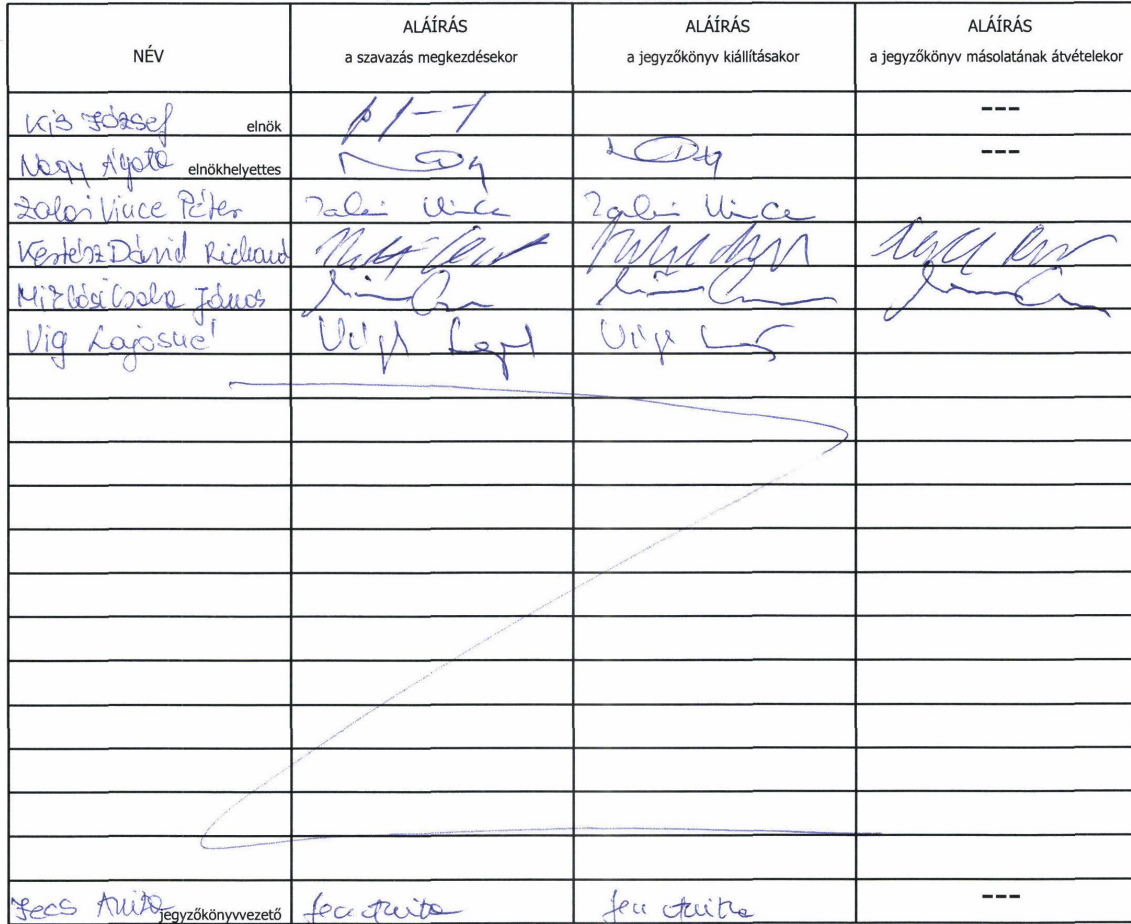 NÉV
ALÁÍRÁS
a szavazás megkezdésekor
ALÁÍRÁS
a jegyzőkönyv kiállításakor
ALÁÍRÁS
a jegyzőkönyv másolatának átvételekor
Kis József elnök
---
Nagy Ágota elnökhelyettes
---
Zalai Vince Péter Zalai Vince Zalai Vince
Kertész Dávid Richard
Miklósi Csaba János
Vig Lajosné
Jecs Anita jegyzőkönyvvezető Jecs Anita Jecs Anita ---